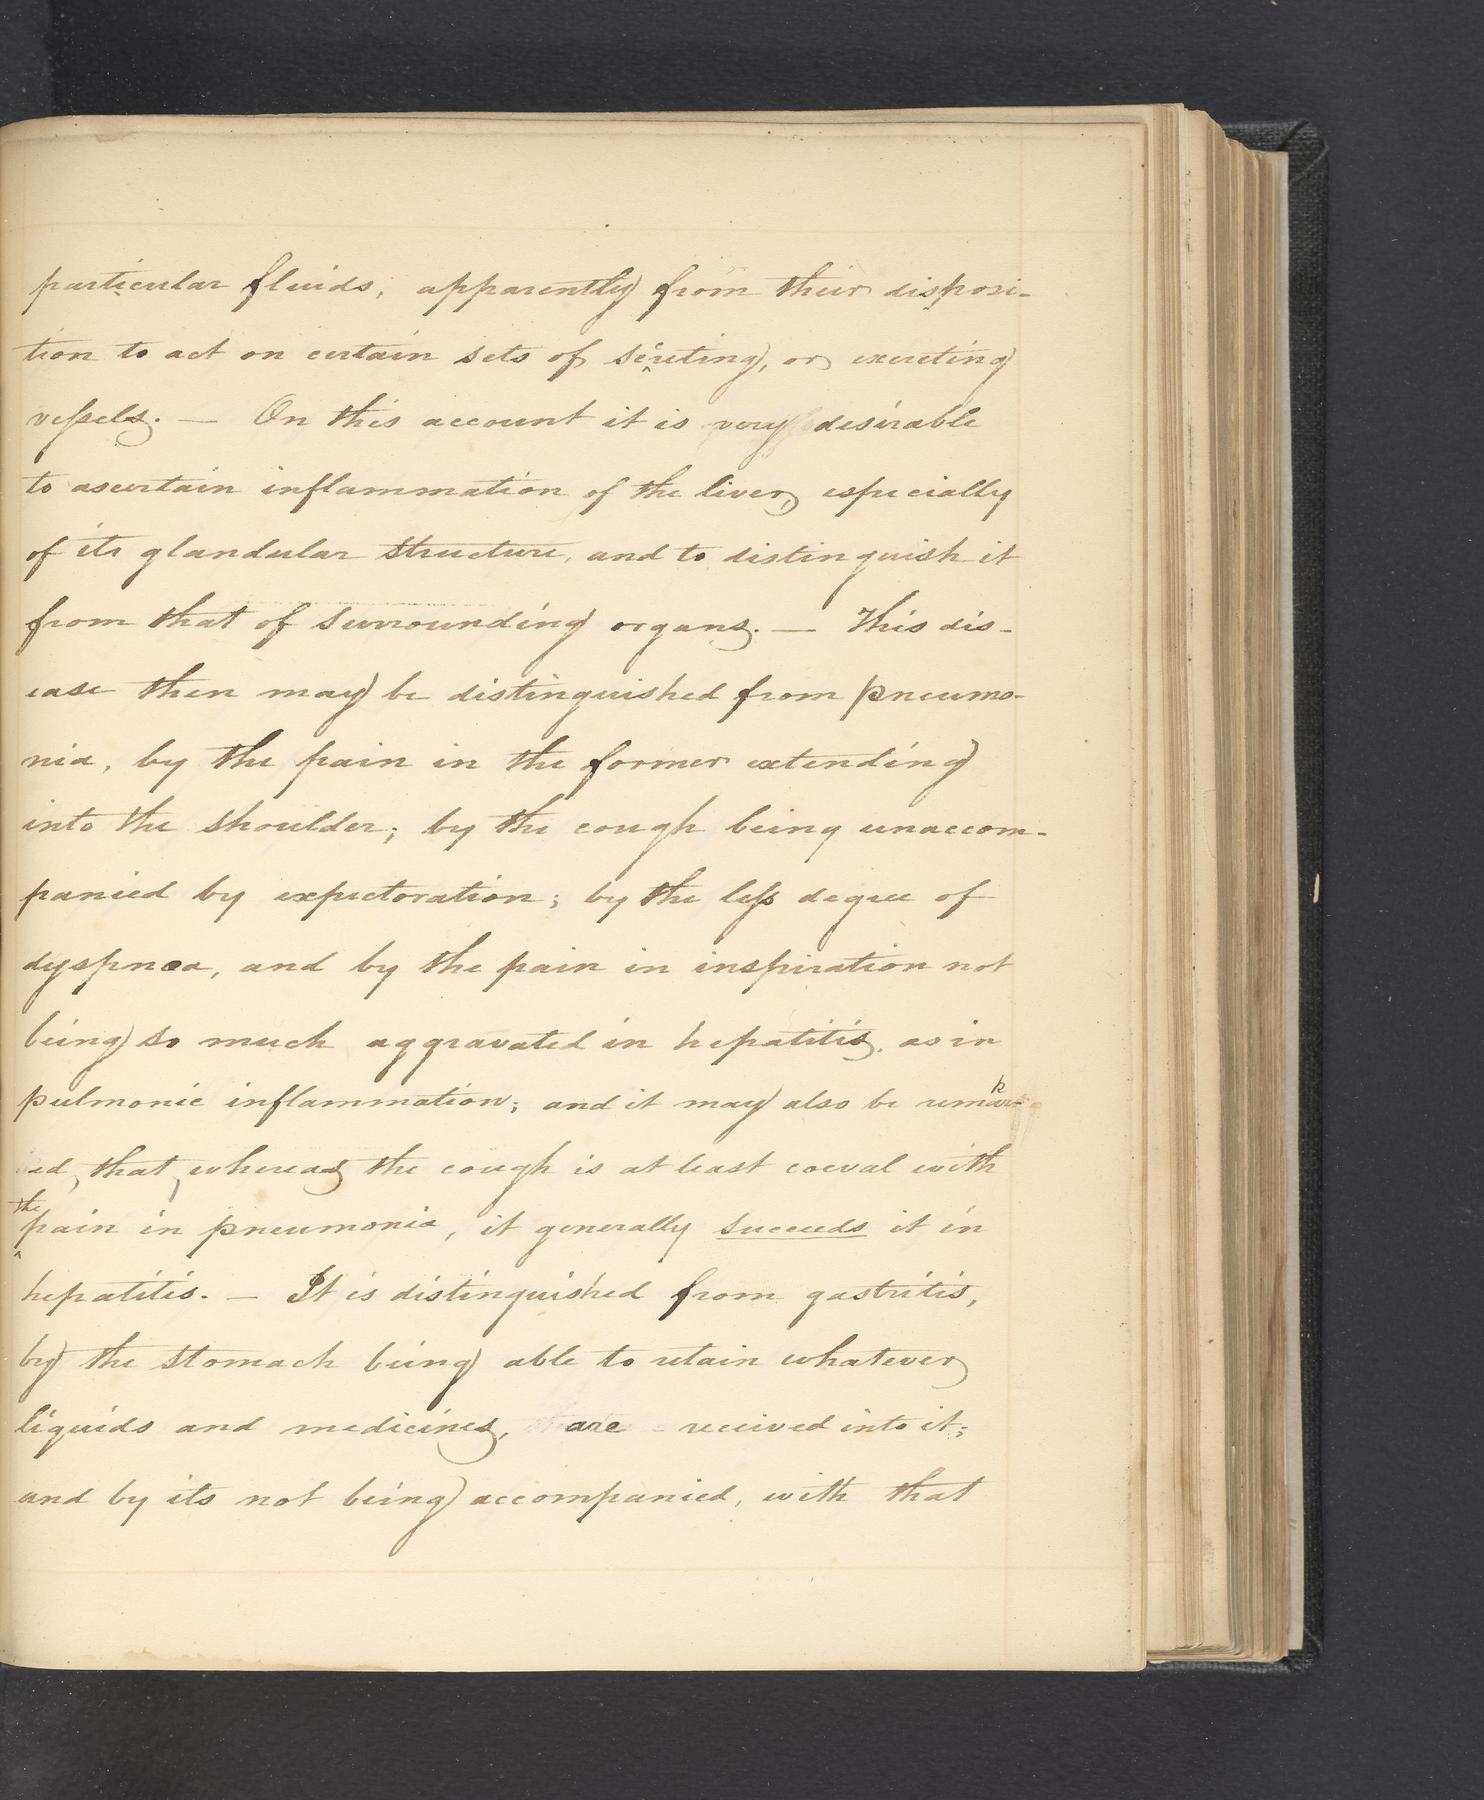 particular fluids, apparently from their disposi-
tion to act on certain sets of secreting, or excreting
vessels. — On this account it is very desirable
to ascertain inflammation of the liver, especially
of its glandular structure, and to distinguish it
from that of surrounding organs. — This dis-
ease then may be distinguished from pneumo-
nia, by the pain in the former extending
into the shoulder; by the cough being unaccom-
panied by expectoration; by the less degree of
dyspnœa, and by the pain in inspiration not
being so much aggravated in hepatitis, as in
pulmonic inflammation; and it may also be remark-
ed, that, whereas the cough is at least coeval with
the pain in pneumonia, it generally succeeds it in
hepatitis. — It is distinguished from gastritis,
by the stomach being able to retain whatever
liquids and medicines, are received into it;
and by its not being accompanied, with that